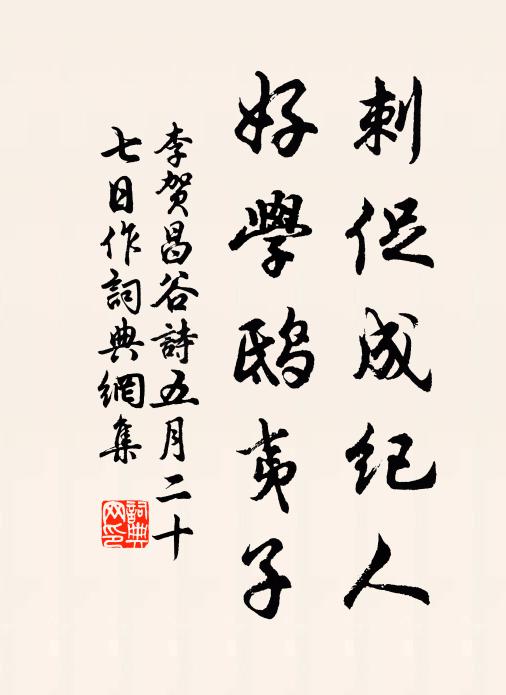 刺促成纪人
好學鴟夷子
李贺昌谷詩五月二十
七日作詞典網集
詞典网印